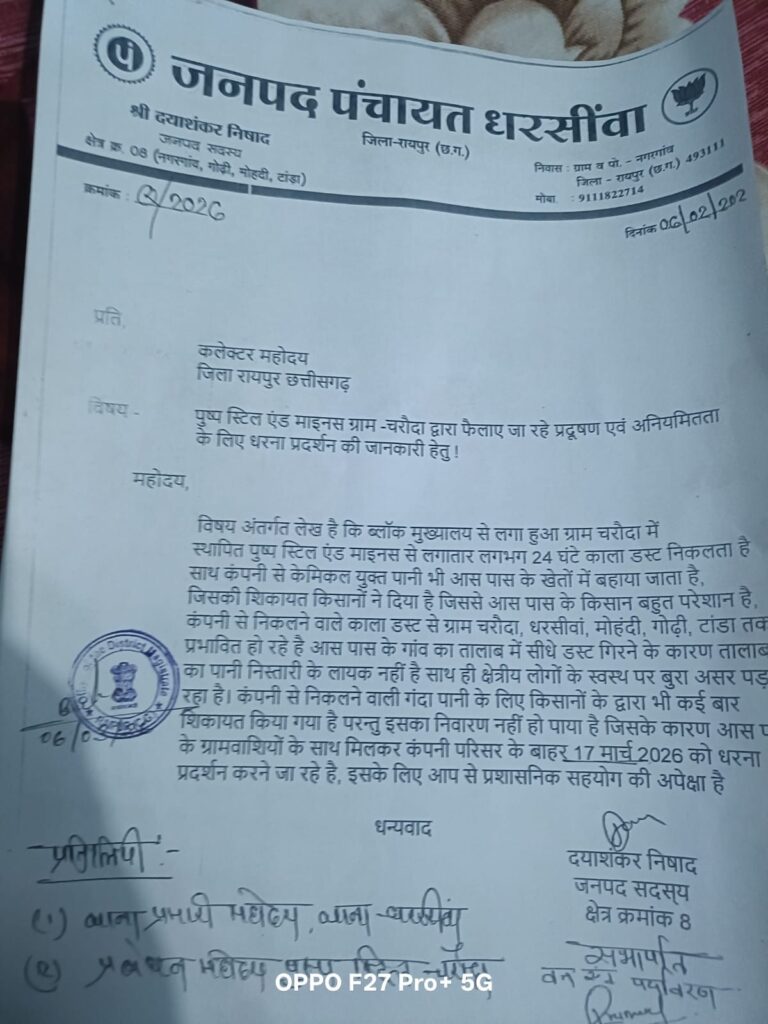 जनपद पंचायत धरसींवा
श्री दयाशंकर निषाद
जनपद सदस्य
क्षेत्र क्र. 08 (नगरगांव, गोढ़ी, मोहदी, टांडा)
जिला-रायपुर (छ.ग.)
निवास : ग्राम व पो. - नगरगांव
जिला - रायपुर (छ.ग.) 493111
मोबा. : 9111822714
क्रमांक : /2026
दिनांक 06/02/202
प्रति,
कलेक्टर महोदय
जिला रायपुर छत्तीसगढ़
विषय - पुष्प स्टिल एंड माइनस ग्राम -चरौदा द्वारा फैलाए जा रहे प्रदूषण एवं अनियमितता
के लिए धरना प्रदर्शन की जानकारी हेतु !
महोदय,
विषय अंतर्गत लेख है कि ब्लॉक मुख्यालय से लगा हुआ ग्राम चरौदा में
स्थापित पुष्प स्टिल एंड माइनस से लगातार लगभग 24 घंटे काला डस्ट निकलता है
साथ कंपनी से केमिकल युक्त पानी भी आस पास के खेतों में बहाया जाता है,
जिसकी शिकायत किसानों ने दिया है जिससे आस पास के किसान बहुत परेशान है,
कंपनी से निकलने वाले काला डस्ट से ग्राम चरौदा, धरसीवां, मोहंदी, गोढ़ी, टांडा तक
प्रभावित हो रहे है आस पास के गांव का तालाब में सीधे डस्ट गिरने के कारण तालाब
का पानी निस्तारी के लायक नहीं है साथ ही क्षेत्रीय लोगों के स्वस्थ पर बुरा असर पड़
रहा है। कंपनी से निकलने वाली गंदा पानी के लिए किसानों के द्वारा भी कई बार
शिकायत किया गया है परन्तु इसका निवारण नहीं हो पाया है जिसके कारण आस प
के ग्रामवाशियों के साथ मिलकर कंपनी परिसर के बाहर 17 मार्च 2026 को धरना
प्रदर्शन करने जा रहे है, इसके लिए आप से प्रशासनिक सहयोग की अपेक्षा है
District Magistrate
06/0
धन्यवाद
दयाशंकर निषाद
जनपद सदस्य
क्षेत्र क्रमांक 8
सभापति
वन एवं पर्यावरण
प्रतिलिपी :-
(1) थाना प्रभारी महोदय, थाना - धरसींवा
(2) प्रबंधन महोदय पुष्प स्टिल चरौदा
OPPO F27 Pro+ 5G